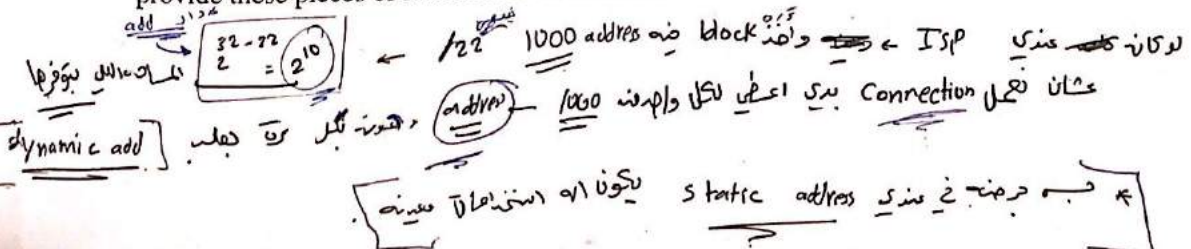 provide these pieces of
لو كان عندي ISP ← واخذ block فيه 1000 address /22 ←
2^(32-22) = 2^10
add
عشان نعمل Connection بدي اعطي لكل واحد منهم 1000 address بكل مرة بطلب [dynamic add]
* بس في عندي static address يكون له استخدامات معينة